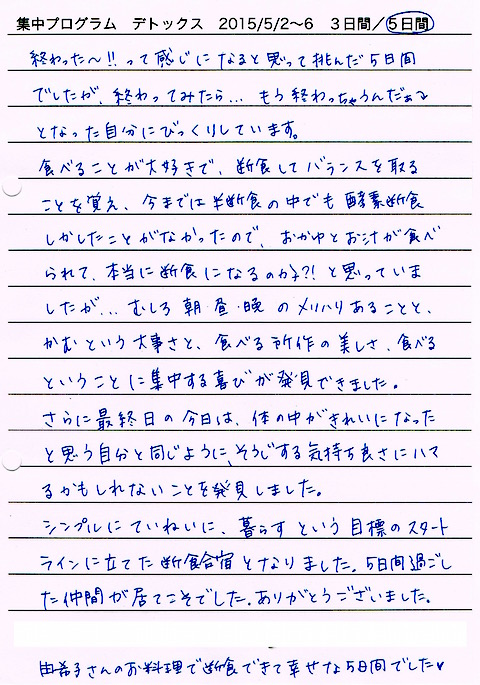 集中プログラム　デトックス　2015/5/2〜6　３日間／５日間
終わった〜!! って感じになると思って挑んだ5日間
でしたが、終わってみたら… もう終わっちゃうんだぁ〜
となった自分にびっくりしています。
食べることが大好きで、断食してバランスを取る
ことを覚え、今までは半断食の中でも酵素断食
しかしたことがなかったので、おかゆとお汁が食べ
られて、本当に断食になるのか?! と思っていま
したが… むしろ朝・昼・晩のメリハリあることと、
かむという大事さと、食べる所作の美しさ、食べる
ということに集中する喜びが発見できました。
さらに最終日の今日は、体の中がきれいになった
と思う自分と同じように、そうじする気持ち良さにハマ
るかもしれないことを発見しました。
シンプルにていねいに、暮らすという目標のスタート
ラインに立てた断食合宿となりました。5日間過ごし
た仲間が居てこそでした。ありがとうございました。
由希子さんのお料理で断食できて幸せな5日間でした♥